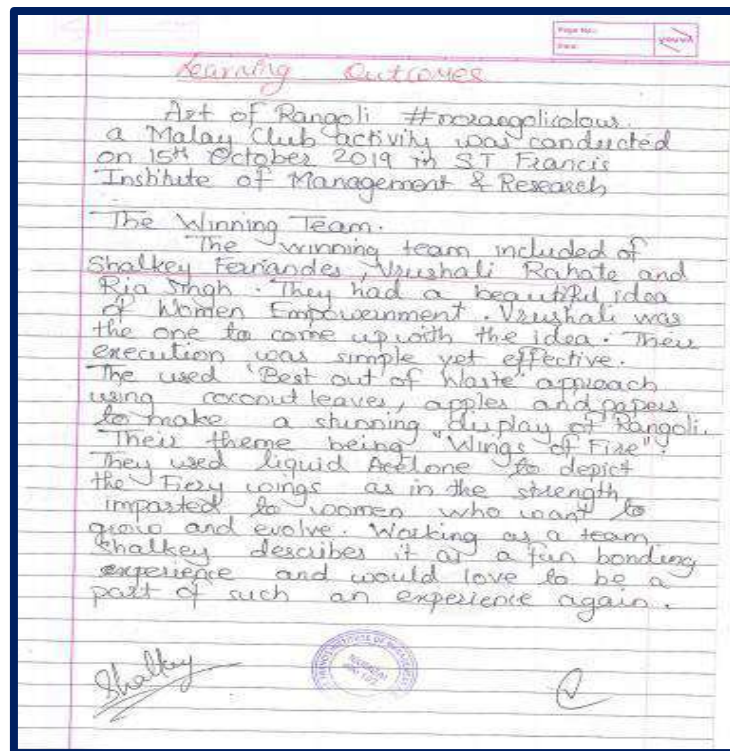 Page No.:
Date:
YOUVA
Learning Outcomes
Art of Rangoli #norangolicolour.
a Malay Club activity was conducted
on 15th October 2019 in ST Francis
Institute of Management & Research
The Winning Team.
The winning team included of
Shalkey Fernandes, Vrushali Rahate and
Ria Singh. They had a beautiful idea
of Women Empowernment. Vrushali was
the one to come up with the idea. Their
execution was simple yet effective.
The used 'Best out of Waste' approach
using coconut leaves, apples and papers
to make a stunning display of Rangoli.
Their theme being "Wings of Fire".
They used liquid Acetone to depict
the Fiery wings as in the strength
imparted to women who want to
grow and evolve. Working as a team
Shalkey describes it as a fun bonding
experience and would love to be a
part of such an experience again.
Shalkey